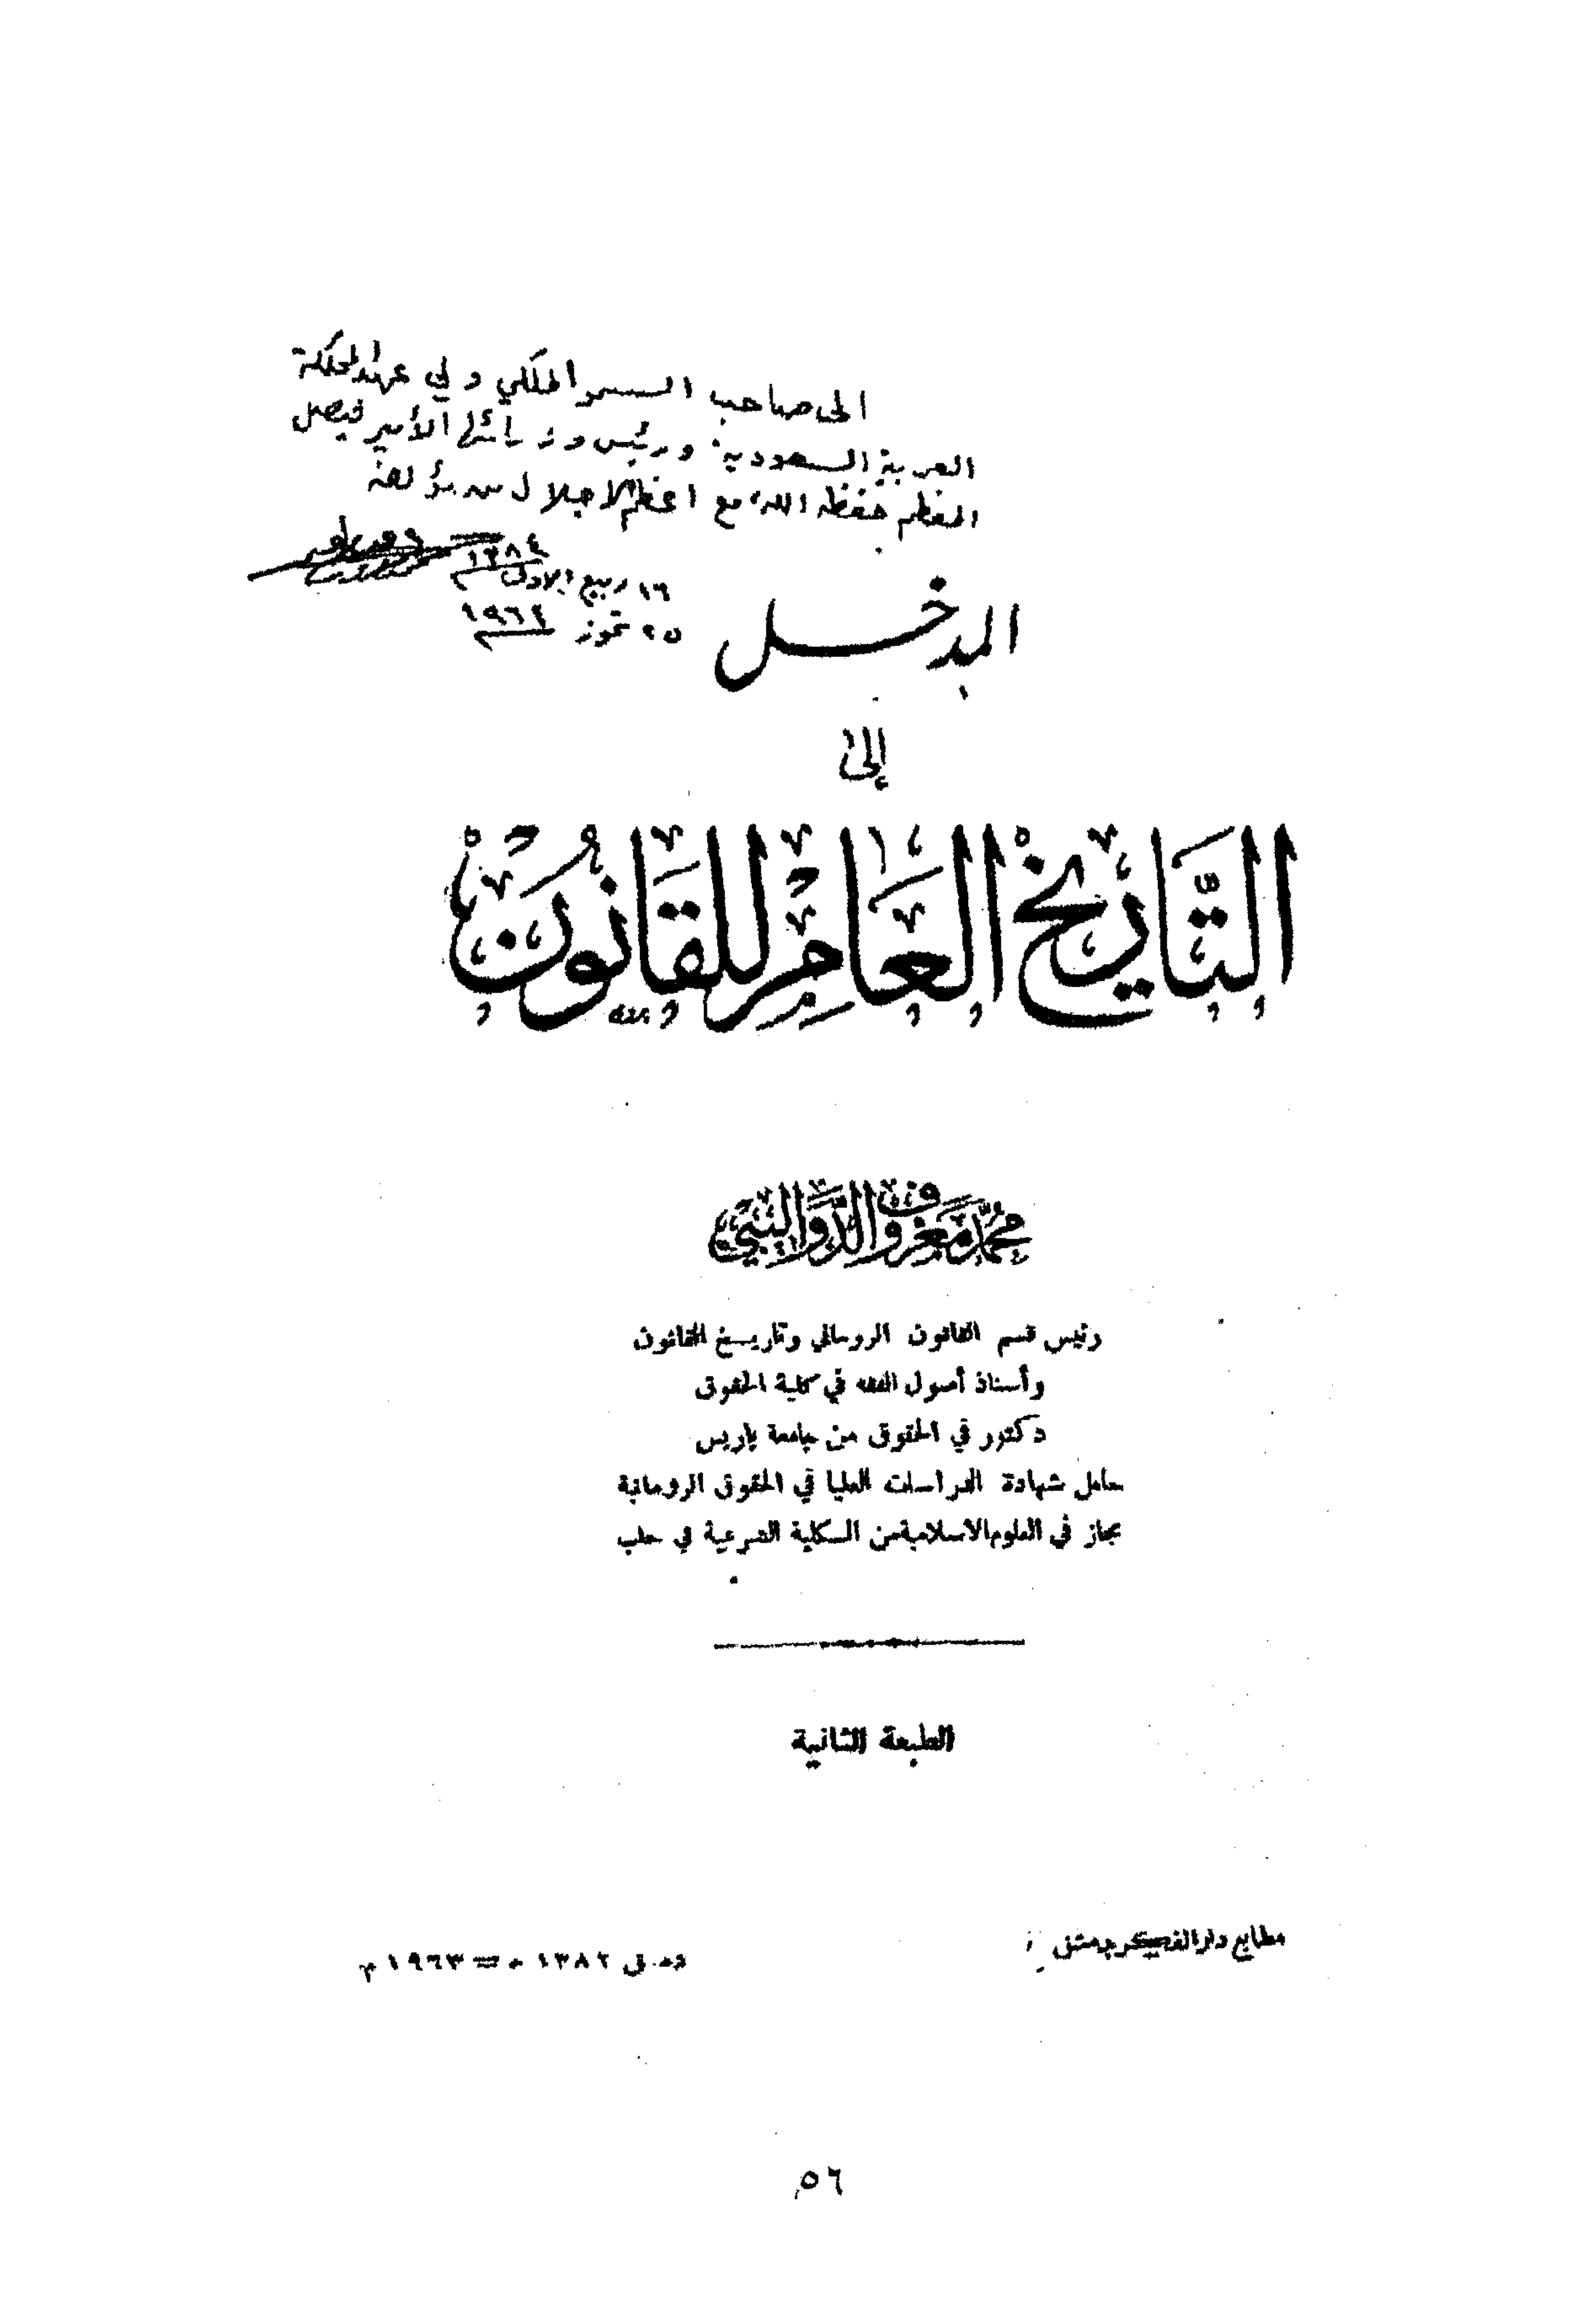 الى صاحب السمو الملكي ولي عهد المملكة
العربية السعودية ورئيس وزرائها الأمير فيصل
المعظم حفظه الله، مع اعظم الاجلال من مؤلفه
١٦ ربيع الاول ١٣٨٤
٢٥ تموز ١٩٦٤
المدخل
إلى
التَّاريخ العَام للقَانُون
محمّد معروف الدَّواليبي
رئيس قسم القانون الروماني وتاريخ القانون
وأستاذ أصول الفقه في كلية الحقوق
دكتور في الحقوق من جامعة باريس
حامل شهادة الدراسات العليا في الحقوق الرومانية
مجاز في العلوم الاسلامية من الكلية الشرعية في حلب
الطبعة الثانية
مطابع دار الفكر بدمشق
١٣٨٢ هـ = ١٩٦٣ م
٥٦